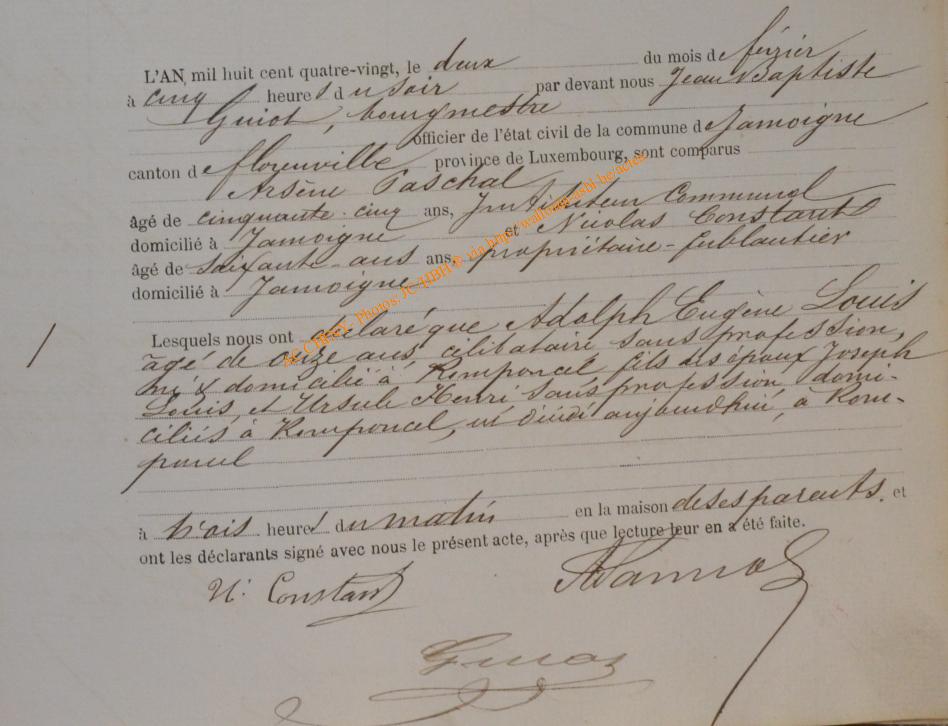 L'AN, mil huit cent quatre-vingt, le deux du mois de février
à cinq heures du soir par devant nous Jean Baptiste
Guiot, bourgmestre
officier de l'état civil de la commune de Jamoigne
canton de florenville province de Luxembourg, sont comparus
Arsène Paschal
âgé de cinquante-cinq ans, Instituteur Communal
domicilié à Jamoigne et Nicolas Constant
âgé de soixante-ans ans, propriétaire-ferblantier
domicilié à Jamoigne
Lesquels nous ont déclaré que Adolph Eugène Louis
âgé de onze ans, célibataire sans profession,
né & domicilié à Romponcel fils des époux Joseph
Louis, et Ursule Henri sans profession domi-
ciliés à Romponcel, est décédé aujourd'hui, à Rom-
poncel
à trois heures du matin en la maison de ses parents. et
ont les déclarants signé avec nous le présent acte, après que lecture leur en a été faite.
N. Constant
Guiot
JC CHEZY. Photos: JC/HBH © via http://wallonia-asbl.be/actes